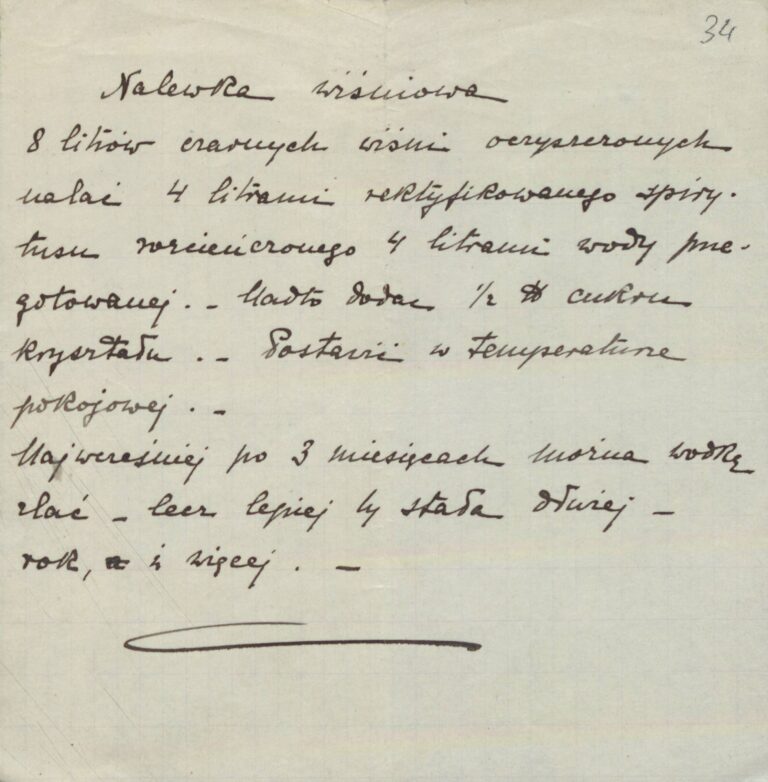 34
Nalewka wiśniowa
8 litrów czarnych wiśni oczyszczonych
nalać 4 litrami rektyfikowanego spiry-
tusu rozcieńczonego 4 litrami wody prze-
gotowanej. – Nadto dodać ½ ℔ cukru
kryształu. – Postawić w temperaturze
pokojowej. –
Najwcześniej po 3 miesiącach można wódkę
zlać – lecz lepiej by stała dłużej –
rok, i więcej. –